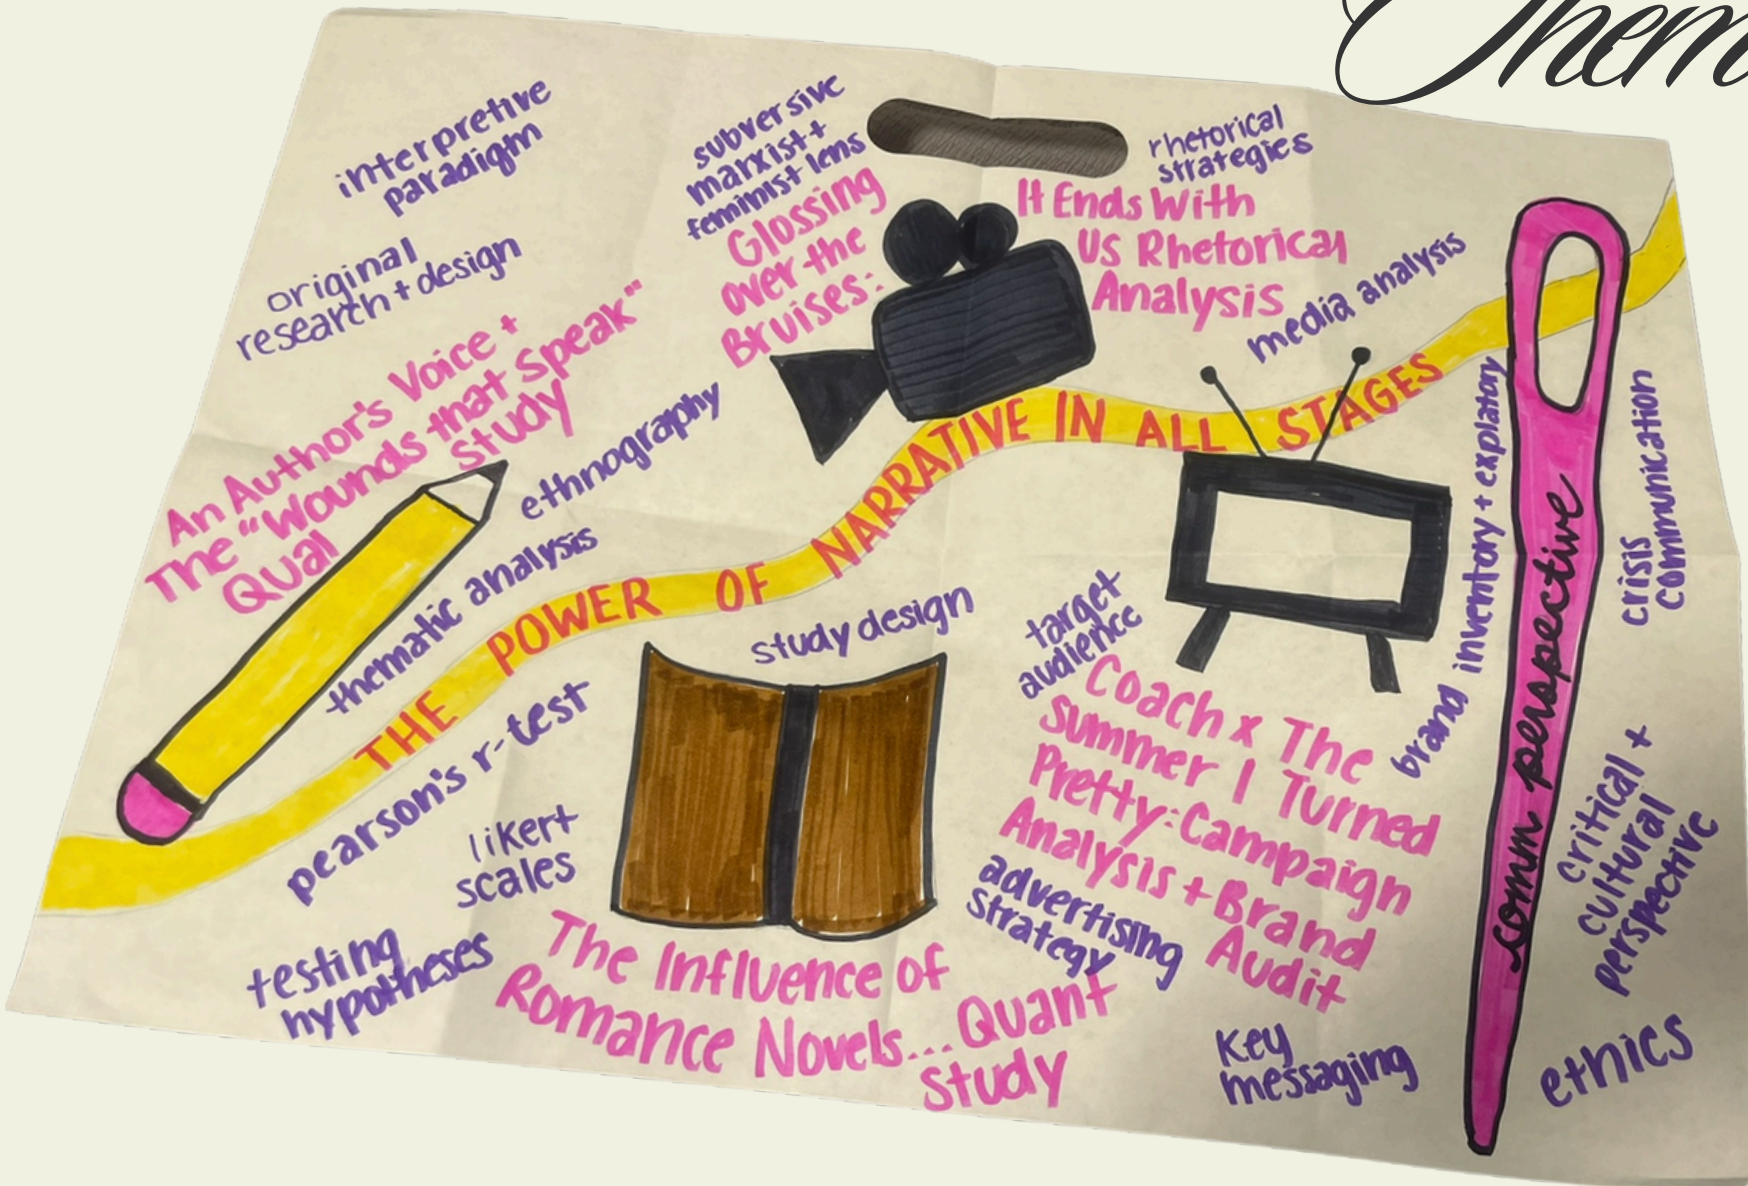 Them
interpretive
paradigm
original
research + design
An Author's Voice +
The "Wounds that Speak"
Qual Study
ethnography
thematic analysis
subversive
marxist +
feminist lens
Glossing
over the
Bruises:
rhetorical
strategies
It Ends With
Us Rhetorical
Analysis
media analysis
THE POWER OF NARRATIVE IN ALL STAGES
pearson's r-test
likert
scales
testing
hypotheses
study design
The Influence of
Romance Novels... Quant
Study
target
audience
Coach x The
Summer I Turned
Pretty: Campaign
Analysis + Brand
Audit
advertising
strategy
key
messaging
brand inventory + explatory
comm perspective
crisis
communication
critical +
cultural
perspective
ethics